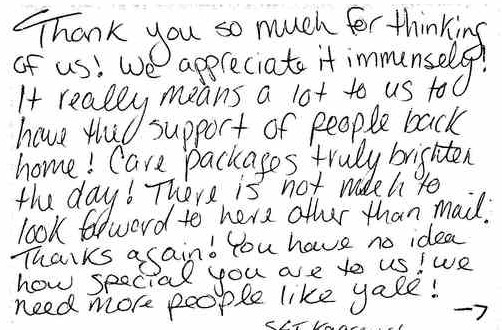 Thank you so much for thinking
of us! We appreciate it immensely!
It really means a lot to us to
have the support of people back
home! Care packages truly brighten
the day! There is not much to
look forward to here other than mail.
Thanks again! You have no idea
how special you are to us! We
need more people like yall! →
SGT